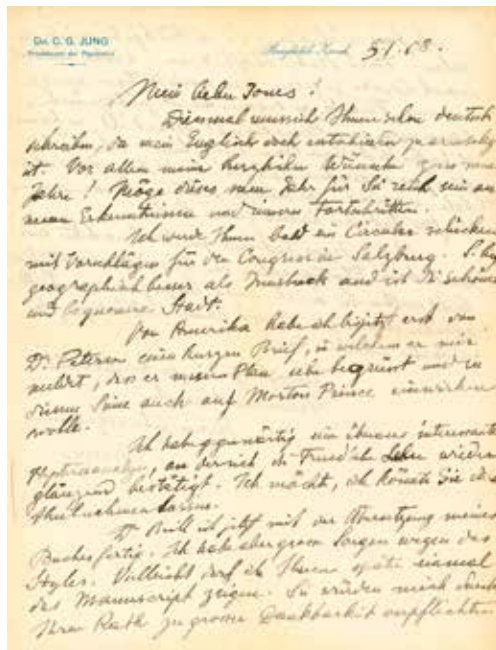 Dr. C. G. JUNG
Burghölzli-Zürich 5 I. 08.
Mein lieber Jones!
Diesmal muss ich Ihnen schon deutsch
schreiben, da mein Englisch doch
ist. Vor allem meine herzlichen Wünsche zum neuen
Jahre! Möge dieses neue Jahr für Sie reich sein an
neuen Erkenntnissen und inneren Fortschritten.
Ich werde Ihnen bald ein Circular schicken
mit Vorschlägen für den Congress in Salzburg. S. liegt
geographisch besser als Innsbruck und ist die schönere
und bequemere Stadt.
Von Amerika habe ich bis jetzt erst von
Dr. Peterson einen kurzen Brief, in welchem er mir
meldet, dass er meinen Plan sehr begrüsst und in
diesem Sinne auch auf Morton Prince einwirken
wolle.
Ich habe gegenwärtig eine überaus interessante
an der sich die Freud'sche Lehre wieder
glänzend bestätigt. Ich möchte, ich könnte Sie daran
theilnehmen lassen.
Dr. Brill ist jetzt mit der Übersetzung meines
Buches fertig. Ich habe aber grosse Sorgen wegen des
Styles. Vielleicht darf ich Ihnen später einmal
das Manuscript zeigen. Sie würden mich durch
Ihren Rath zu grosser Dankbarkeit verpflichten.